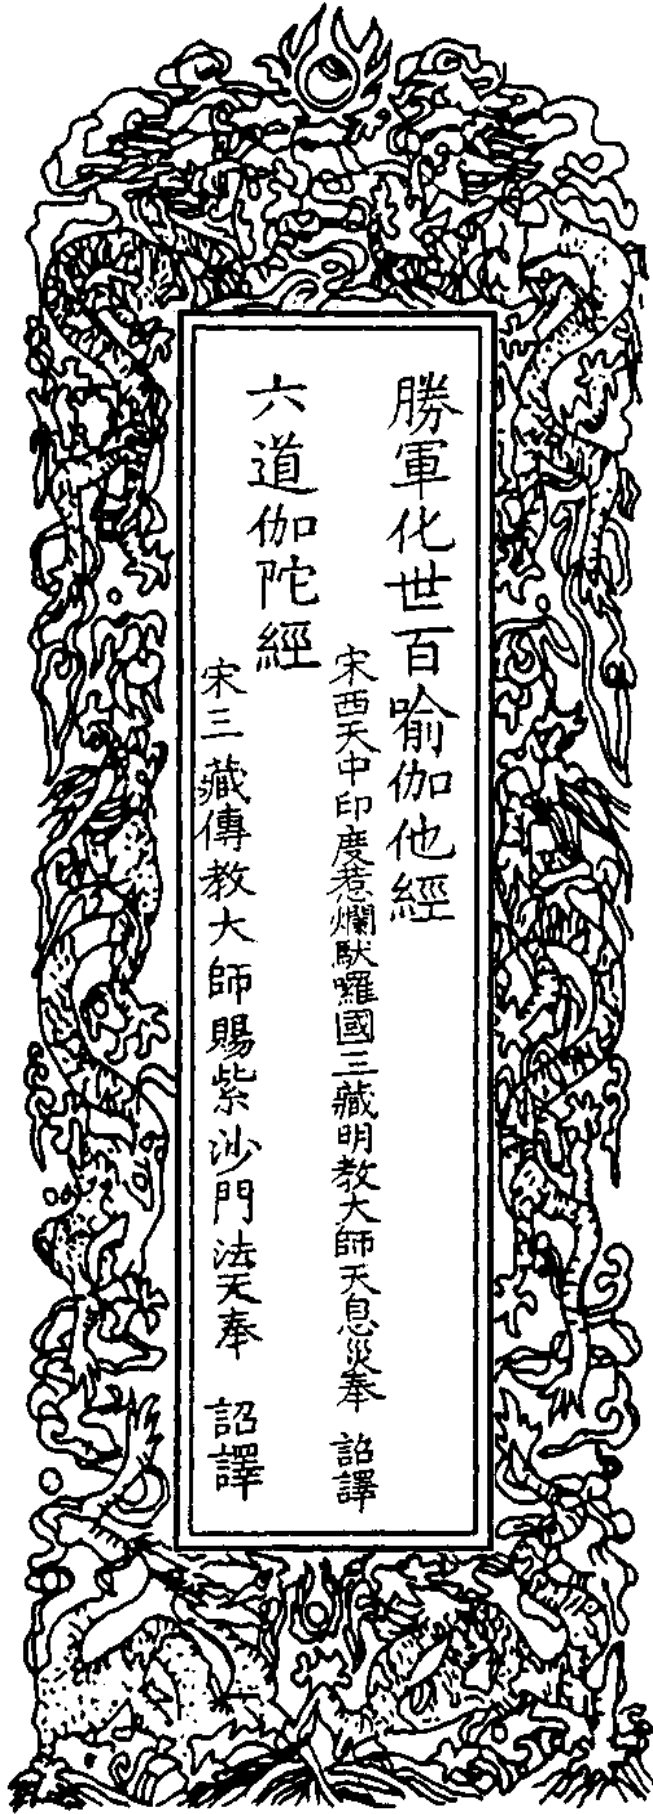 勝軍化世百喻伽他經
宋西天中印度惹爛馱囉國三藏明教大師天息災奉 詔譯
六道伽陀經
宋三藏傳教大師賜紫沙門法天奉 詔譯